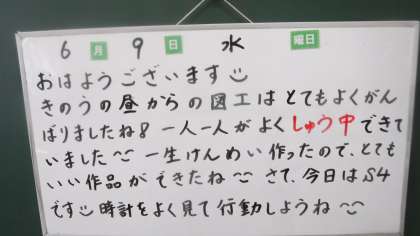 6月9日 水曜日
おはようございます
きのうの昼からの図工はとてもよくがん
ばりましたね! 一人一人がよくしゅう中できて
いました 一生けんめい作ったので、とても
いい作品ができたね さて、今日はS4
です 時計をよく見て行動しようね